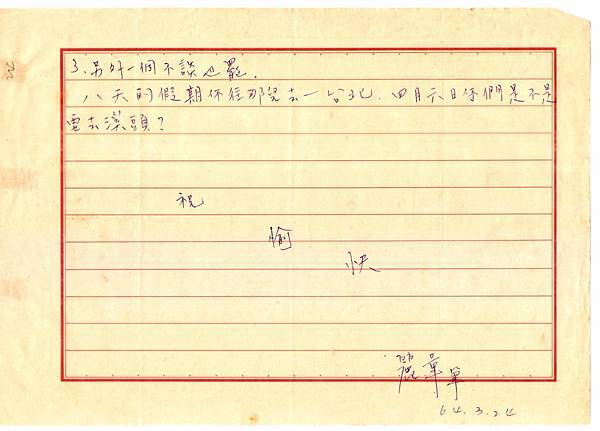 3. 另外一個不談也罷.
八天的假期你往那兒去一台北. 四月六日你們是不是
要去溪頭?
祝
愉
快
麗華筆
64.3.24